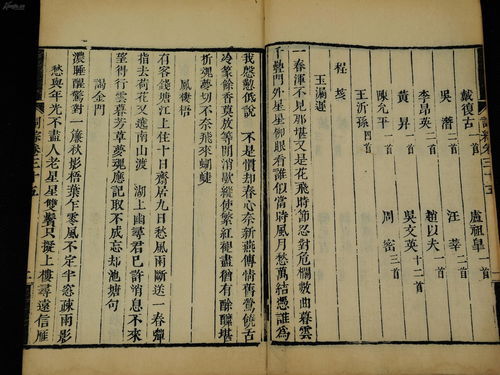 詞綜卷三十五
戴復古一首 盧祖皋一首
吳潛二首 汪莘二首
李昂英一首 趙以夫一首
黃昇一首 吳文英十二首
陳允平一首 周密三首
王沂孫四首
程垓
玉漏遲
一春渾不見那堪又是花飛時節忽對危欄數曲暮雲
千疊門外星星柳眼看誰似當時風月愁萬結憑誰為
我殷懃低說 不是慣却春心奈新燕傳情舊鶯饒舌
冷篆餘香莫放等閒消歇縱使繁紅褪盡猶有酴醾堪
折魂夢切不奈飛來蝴蝶
鳳棲梧
有客錢塘江上住十日齋居九日愁風雨斷送一春彈
指去荷花又遶南山渡 湖上幽尋君已許消息不來
望得行雲暮芳草夢魂應記取不成忘却池塘句
謁金門
濃睡醒驚對一簾秋影梧葉乍零風不定半窓疎雨影
愁與年光不盡人老星星雙鬢只擬上樓尋遠信雁
詞綜卷三十五